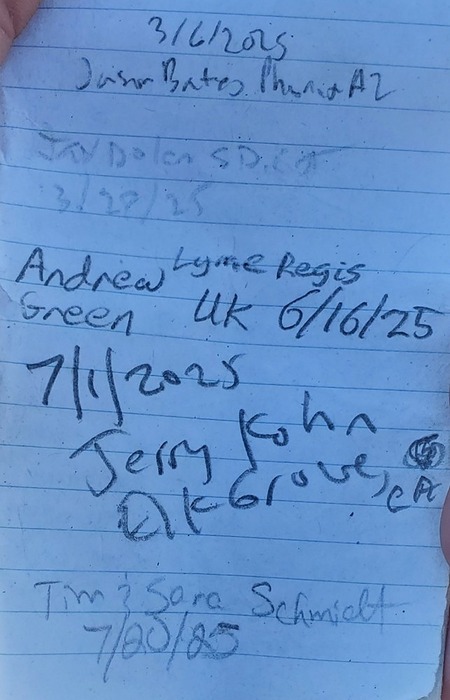 3/6/2025
Jason Bates Phoenix AZ
Jay Dolan SD, CA
3/27/25
Andrew Lyme Regis
Green UK 6/16/25
7/1/2025
Jerry Kohn
Elk Grove, CA
Tim & Sara Schmidt
7/20/25